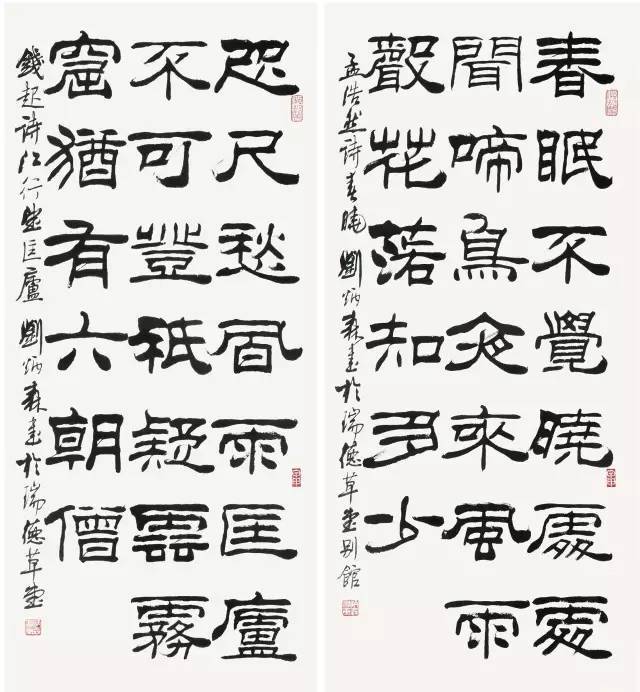 春眠不覺曉處處
聞啼鳥夜來風雨
聲花落知多少
孟浩然詩春曉 劉炳森書於瑞德草堂別館
咫尺愁風雨匡廬
不可登祇疑雲霧
窟猶有六朝僧
錢起詩江行望匡廬 劉炳森書於瑞德草堂